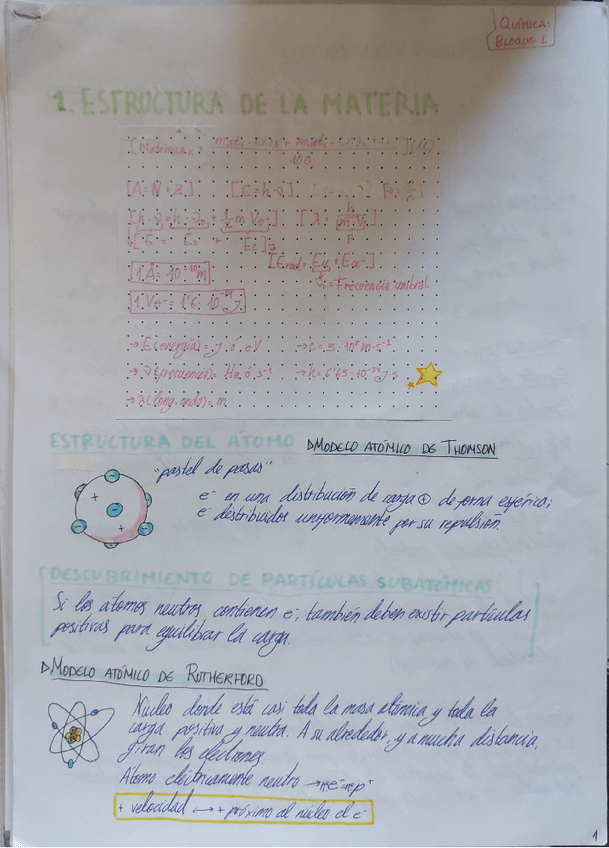 QUÍMICA:
BLOQUE 1
1. ESTRUCTURA DE LA MATERIA
100
[A = N + Z] [E = h · ν]
[h · ν = h · ν₀ + ½ m V₀²] [λ = h / m · v]
[E = E₀ + Ec]
1 Å = 10⁻¹⁰ m
= Frecuencia umbral
→ E (energía) = J ó eV → c = 3 · 10⁸ m · s⁻¹
→ ν (frecuencia) = Hz ó s⁻¹ → h = 6'63 · 10⁻³⁴ J · s
→ λ (long. onda) = m
ESTRUCTURA DEL ÁTOMO ▷MODELO ATÓMICO DE THOMSON
"pastel de pasas"
e⁻ en una distribución de carga ⊕ de forma esférica;
e⁻ distribuidos uniformemente por su repulsión.
DESCUBRIMIENTO DE PARTÍCULAS SUBATÓMICAS
Si los átomos neutros contienen e⁻, también deben existir partículas
positivas para equilibrar la carga.
▷MODELO ATÓMICO DE RUTHERFORD
Núcleo donde está casi toda la masa atómica y toda la
carga positiva y neutra. A su alrededor, y a mucha distancia,
giran los electrones.
Átomo eléctricamente neutro → nºe⁻=nºp⁺
+ velocidad ↔ + próximo al núcleo el e⁻
1